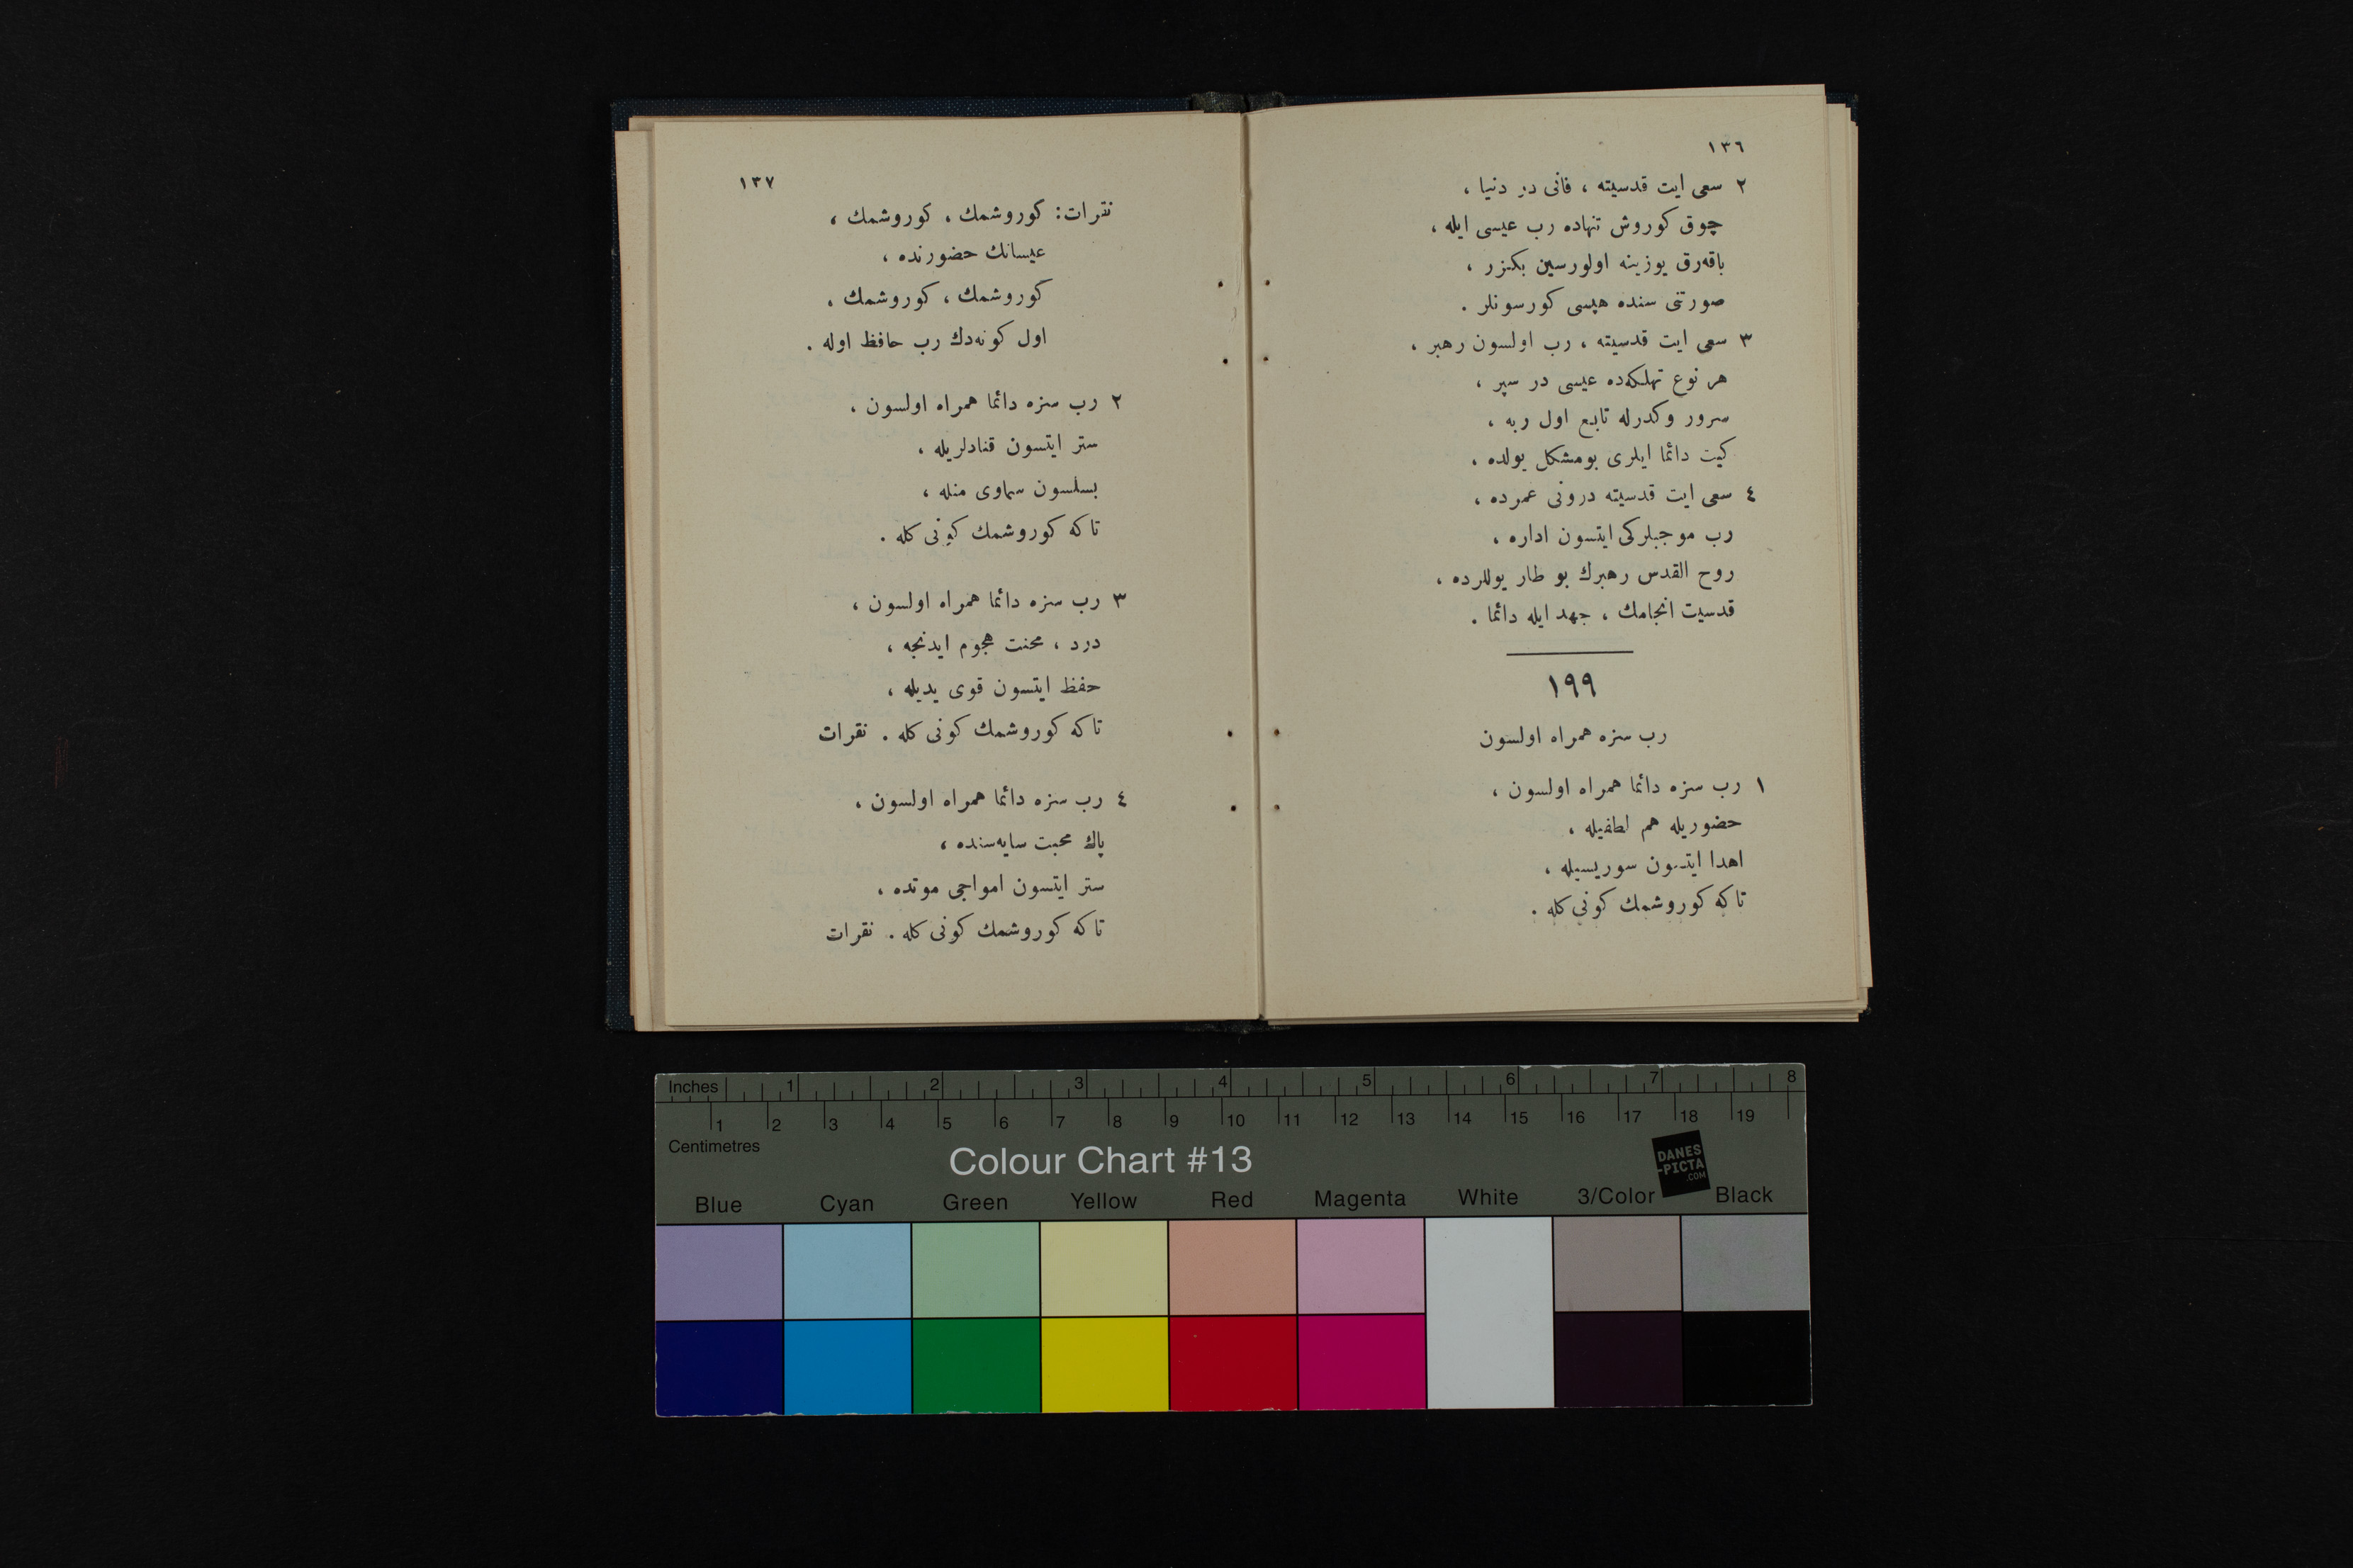 ١٣٦
٢ سعی ایت قدسیته ، فانی در دنیا ،
چوق کوروش تنهاده رب عیسی ایله ،
باقەرق یوزینه اولورسین بکزر ،
صورتنی سنده هپسی کورسونلر .
٣ سعی ایت قدسیته ، رب اولسون رهبر ،
هر نوع تهلکەده عیسی در سپر ،
سرور وکدرله تابع اول ربه ،
کیت دائما ایلری بومشکل یولده ،
٤ سعی ایت قدسیته درونی عمرده ،
رب موجبلرکی ایتسون اداره ،
روح القدس رهبرك بو طار یوللرده ،
قدسیت انجامك ، جهد ایله دائما .
١٩٩
رب سزه همراه اولسون
١ رب سزه دائما همراه اولسون ،
حضوریله هم لطفیله ،
اهدا ایتسون سوریسیله ،
تاکه کوروشمك کونی کله .
١٣٧
نقرات: کوروشمك ، کوروشمك ،
عیسانك حضورنده ،
کوروشمك ، کوروشمك ،
اول کونەدك رب حافظ اوله .
٢ رب سزه دائما همراه اولسون ،
ستر ایتسون قنادلریله ،
بسلسون سماوی منله ،
تاکه کوروشمك کونی کله .
٣ رب سزه دائما همراه اولسون ،
درد ، محنت هجوم ایدنجه ،
حفظ ایتسون قوی یدیله ،
تاکه کوروشمك کونی کله . نقرات
٤ رب سزه دائما همراه اولسون ،
پاك محبت سایەسنده ،
ستر ایتسون امواجی موتده ،
تاکه کوروشمك کونی کله . نقرات
Inches 1 2 3 4 5 6 7 8
1 2 3 4 5 6 7 8 9 10 11 12 13 14 15 16 17 18 19
Centimetres
Colour Chart #13
DANES
-PICTA
.COM
Blue Cyan Green Yellow Red Magenta White 3/Color Black